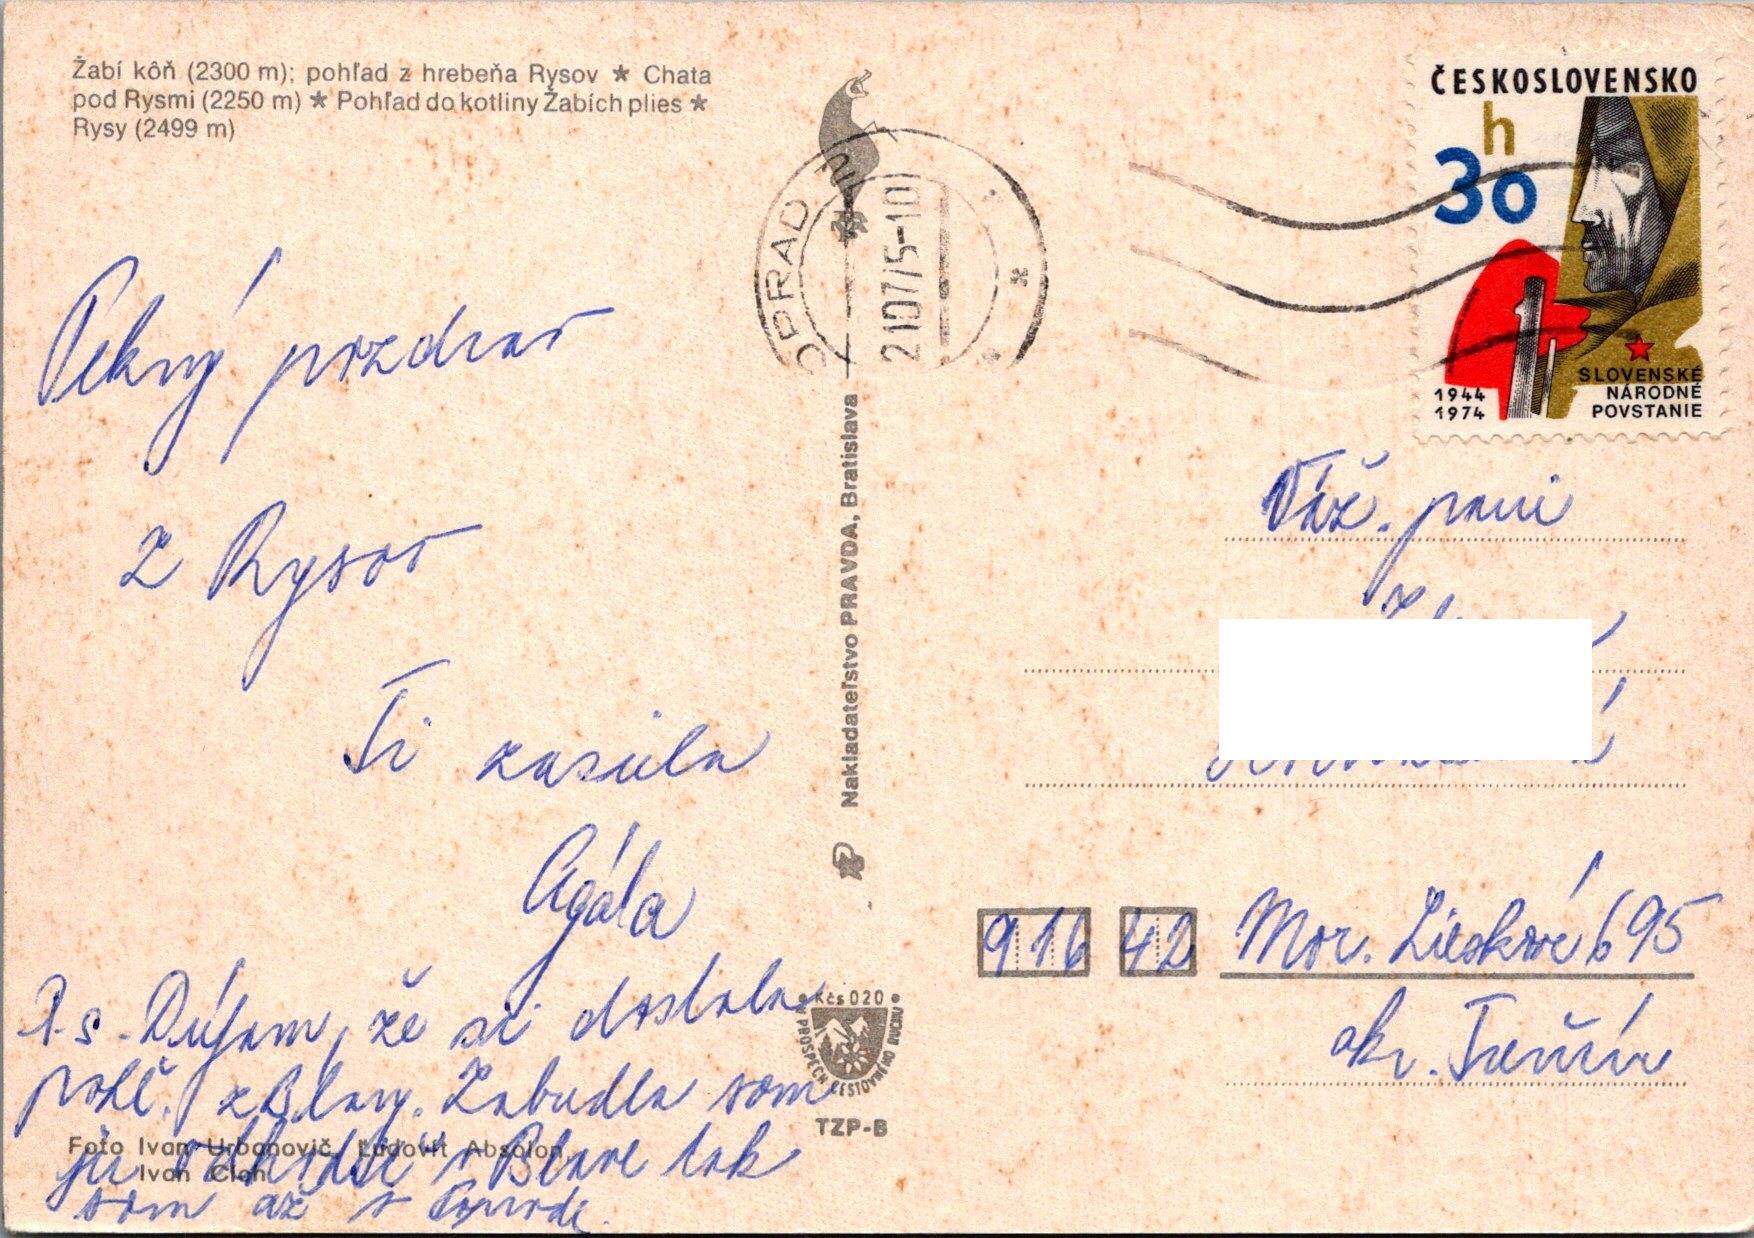 Žabí kôň (2300 m); pohľad z hrebeňa Rysov ★ Chata
pod Rysmi (2250 m) ★ Pohľad do kotliny Žabích plies ★
Rysy (2499 m)
ČESKOSLOVENSKO
h
30
1944
1974
SLOVENSKÉ
NÁRODNÉ
POVSTANIE
OPRAD
21077/5-10
Pekný pozdrav
z Rysov
Ti zasiela
Agáta
P.s. Dúfam, že si dostala
pohľ. z Blavy. Zabudla som
ju v Blave tak
som až v Poprade.
Nakladateľstvo PRAVDA, Bratislava
Váž. pani
916 42 Mor. Lieskové 695
okr. Trenčín
Kčs 0 20
V PROSPECH CESTOVNÉHO RUCHU
TZP-B
Foto Ivan Urbanovič, Ľudovít Absolon,
Ivan Cloh